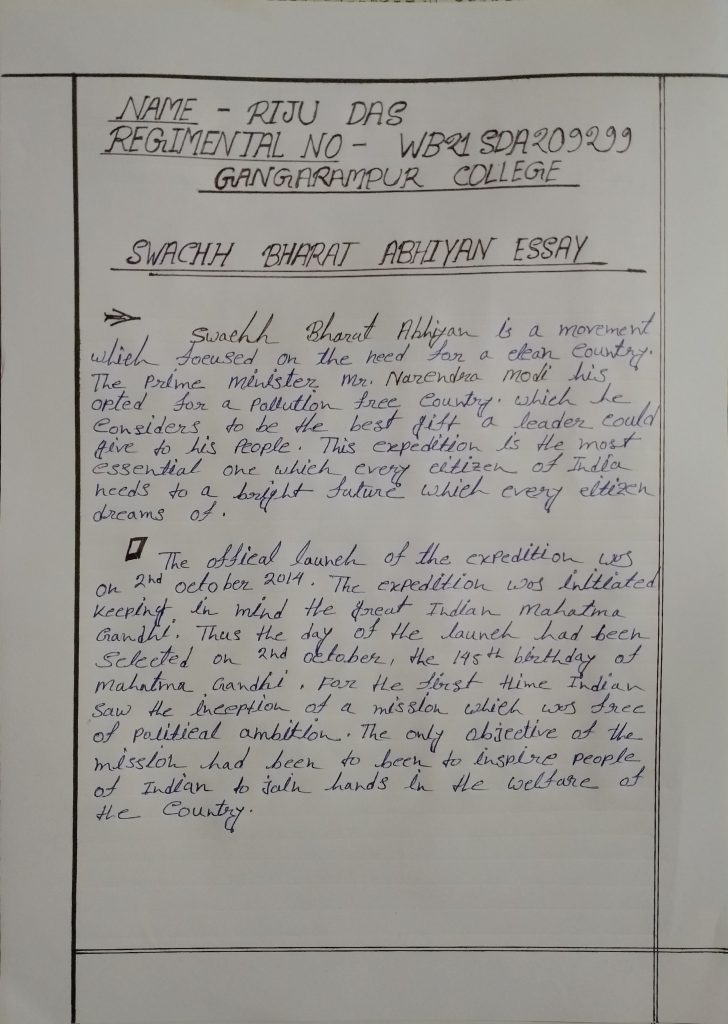 NAME - RIJU DAS
REGIMENTAL NO - WB21SDA209299
GANGARAMPUR COLLEGE
SWACHH BHARAT ABHIYAN ESSAY
Swachh Bharat Abhiyan is a movement
which focused on the need for a clean Country.
The Prime minister Mr. Narendra Modi his
opted for a Pollution free Country. which he
Considers to be the best gift a leader could
give to his People. This expedition is the most
essential one which every citizen of India
needs to a bright future which every citizen
dreams of.
The offical launch of the expedition was
on 2nd october 2014. The expedition was initiated
Keeping in mind the great Indian Mahatma
Gandhi. Thus the day of the launch had been
Selected on 2nd october, the 145th birthday of
Mahatma Gandhi. For the first thime Indian
Saw the inception of a mission which was free
of Political ambition. The only objective of the
mission had been to been to inspire people
of Indian to join hands in the welfare of
the Country.